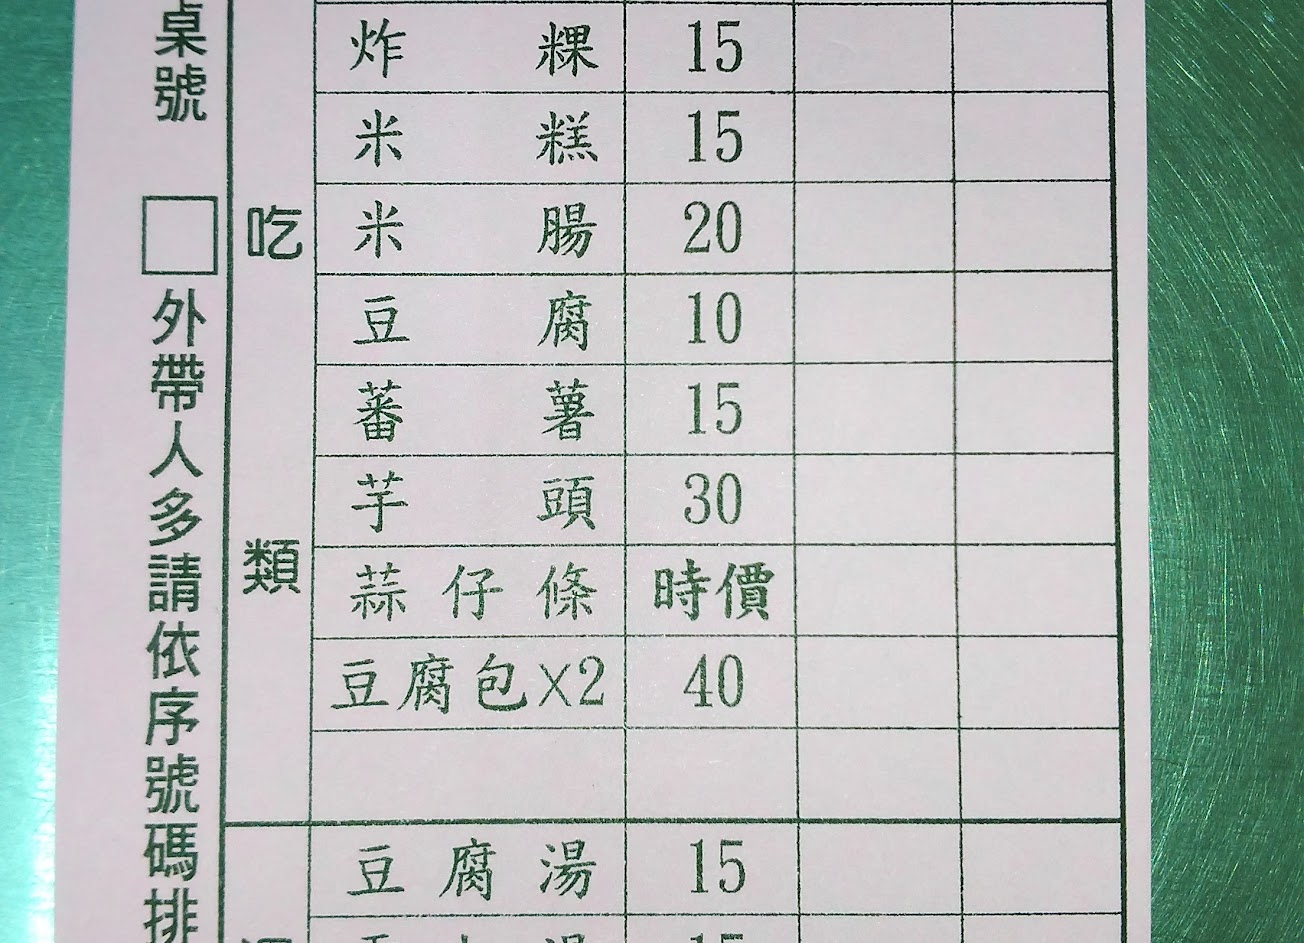 桌號
外帶人多請依序號碼排
吃類
炸粿 15
米糕 15
米腸 20
豆腐 10
蕃薯 15
芋頭 30
蒜仔條 時價
豆腐包X2 40
豆腐湯 15
湯 15